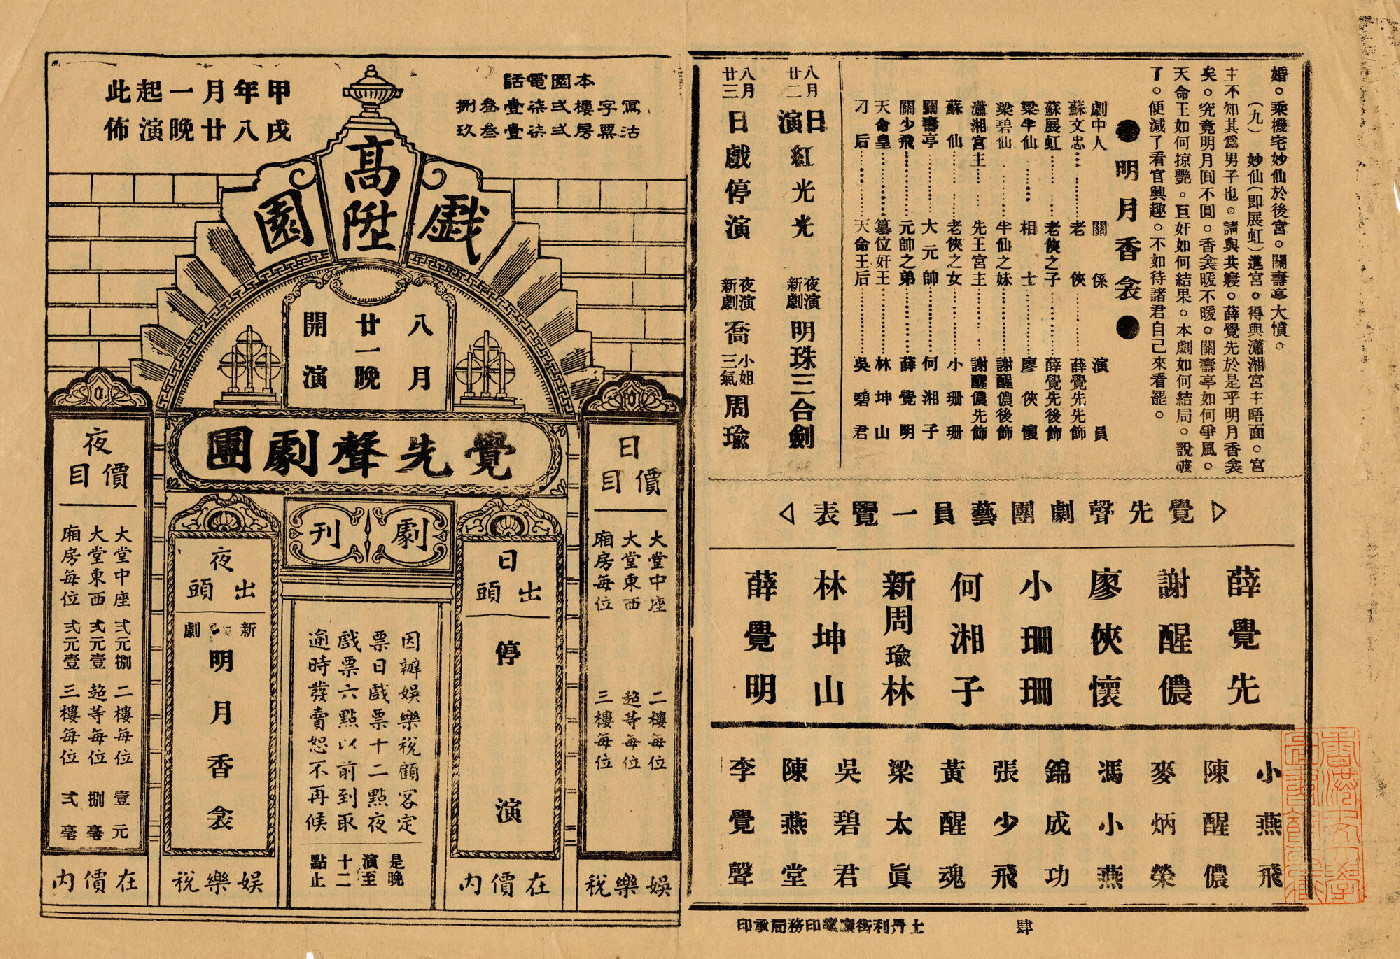 婚。乘機宅妙仙於後宮。關壽亭大憤。
(九) 妙仙(即展虹)進宮。得與瀟湘宮主晤面。宮
主不知其爲男子也。請與共寢。薛覺先於是乎明月香衾
矣。究竟明月圓不圓。香衾暖不暖。關壽亭如何爭風。
天命王如何掠艷。巨奸如何結果。本劇如何結局。說破
了。便減了看官興趣。不如待諸君自己來看罷。
明月香衾
劇中人 關係 演員
蘇文忠 老俠 薛覺先先飾
蘇展虹 老俠之子 薛覺先後飾
梁半仙 相士 廖俠懷
梁碧仙 半仙之妹 謝醒儂後飾
瀟湘宮主 先王宮主 謝醒儂先飾
蘇仙 老俠之女 小珊珊
關壽亭 大元帥 何湘子
關少飛 元帥之弟 薛覺明
天命皇 篡位奸王 林坤山
刁后 天命王后 吳碧君
八月廿二日演 紅光光 夜演新劇 明珠三合劍
八月廿三日戲停演 夜演新劇 喬小姐三氣周瑜
覺先聲劇團藝員一覽表
薛覺先
謝醒儂
廖俠懷
小珊珊
何湘子
新周瑜林
林坤山
薛覺明
小燕飛
陳醒儂
麥炳榮
馮小燕
錦成功
張少飛
黃醒魂
梁太眞
吳碧君
陳燕堂
李覺聲
肆
士丹利街廣業印務局承印
甲戌年八月廿一晚起演此佈
本園電話
寫字樓 弍弍柒壹叁捌
沽票房 弍弍柒壹叁玖
高陞戲園
八月廿一晚開演
覺先聲劇團
劇刊
日價目
大堂中座
大堂東西
廂房每位
二樓每位
超等每位
三樓每位
娛樂稅在價內
日出頭
停演
因辦娛樂稅顧客定
票日戲票十二點夜
戲票六點以前到取
逾時發賣恕不再候
是晚演至十二點止
夜出頭
新劇
明月香衾
娛樂稅在價內
夜價目
大堂中座 弍元捌
大堂東西 弍元壹
廂房每位 弍元壹
二樓每位 壹元
超等每位 捌毫
三樓每位 弍毫